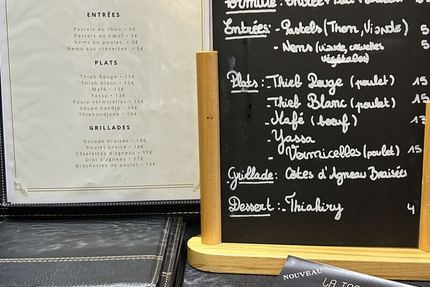 ENTRÉES
Pastels au thon • 5€
Pastels au bœuf • 5€
Nems au poulet • 5€
Nems aux crevettes • 5€
PLATS
Thieb Rouge • 15€
Thieb blanc • 15€
Mafé • 13€
Yassa • 13€
Poule vermicelles • 15€
Soupe kandja • 15€
Thieboudiene •
GRILLADES
Dorade braisée • 18€
Poulet braisé • 15€
Côtelettes d'agneau • 17€
Dibi d'agneau • 17€
Brochettes de poulet • 13€
Formule : Entrée
Entrées : - Pastels (Thon, Viande) 5
- Nems (viande, crevettes 5
végétales)
Plats : - Thieb Rouge (poulet) 15
- Thieb Blanc (poulet) 15
- Mafé (bœuf) 13
- Yassa
- Vermicelles (poulet) 15
Grillade : Côtes d'Agneau Braisées
Dessert : - Thiakiry 4
NOUVEAU